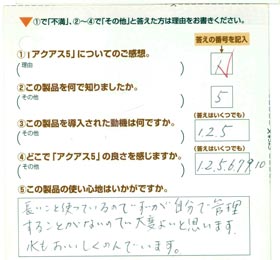 ▼①で「不満」、②～④で「その他」と答えた方は理由をお書きください。
答えの番号を記入
①「アクアス5」についてのご感想。
(理由
)
②この製品を何で知りましたか。
(その他
)
5
③この製品を導入された動機は何ですか。
(その他
)
(答えはいくつでも)
1.2.5
④どこで「アクアス5」の良さを感じますか。
(その他
)
(答えはいくつでも)
1.2.5.6.7.9.10
⑤この製品の使い心地はいかがですか。
長いこと使っているのですが自分で管理
することがないので大変よいと思います。
水もおいしくのんでいます。